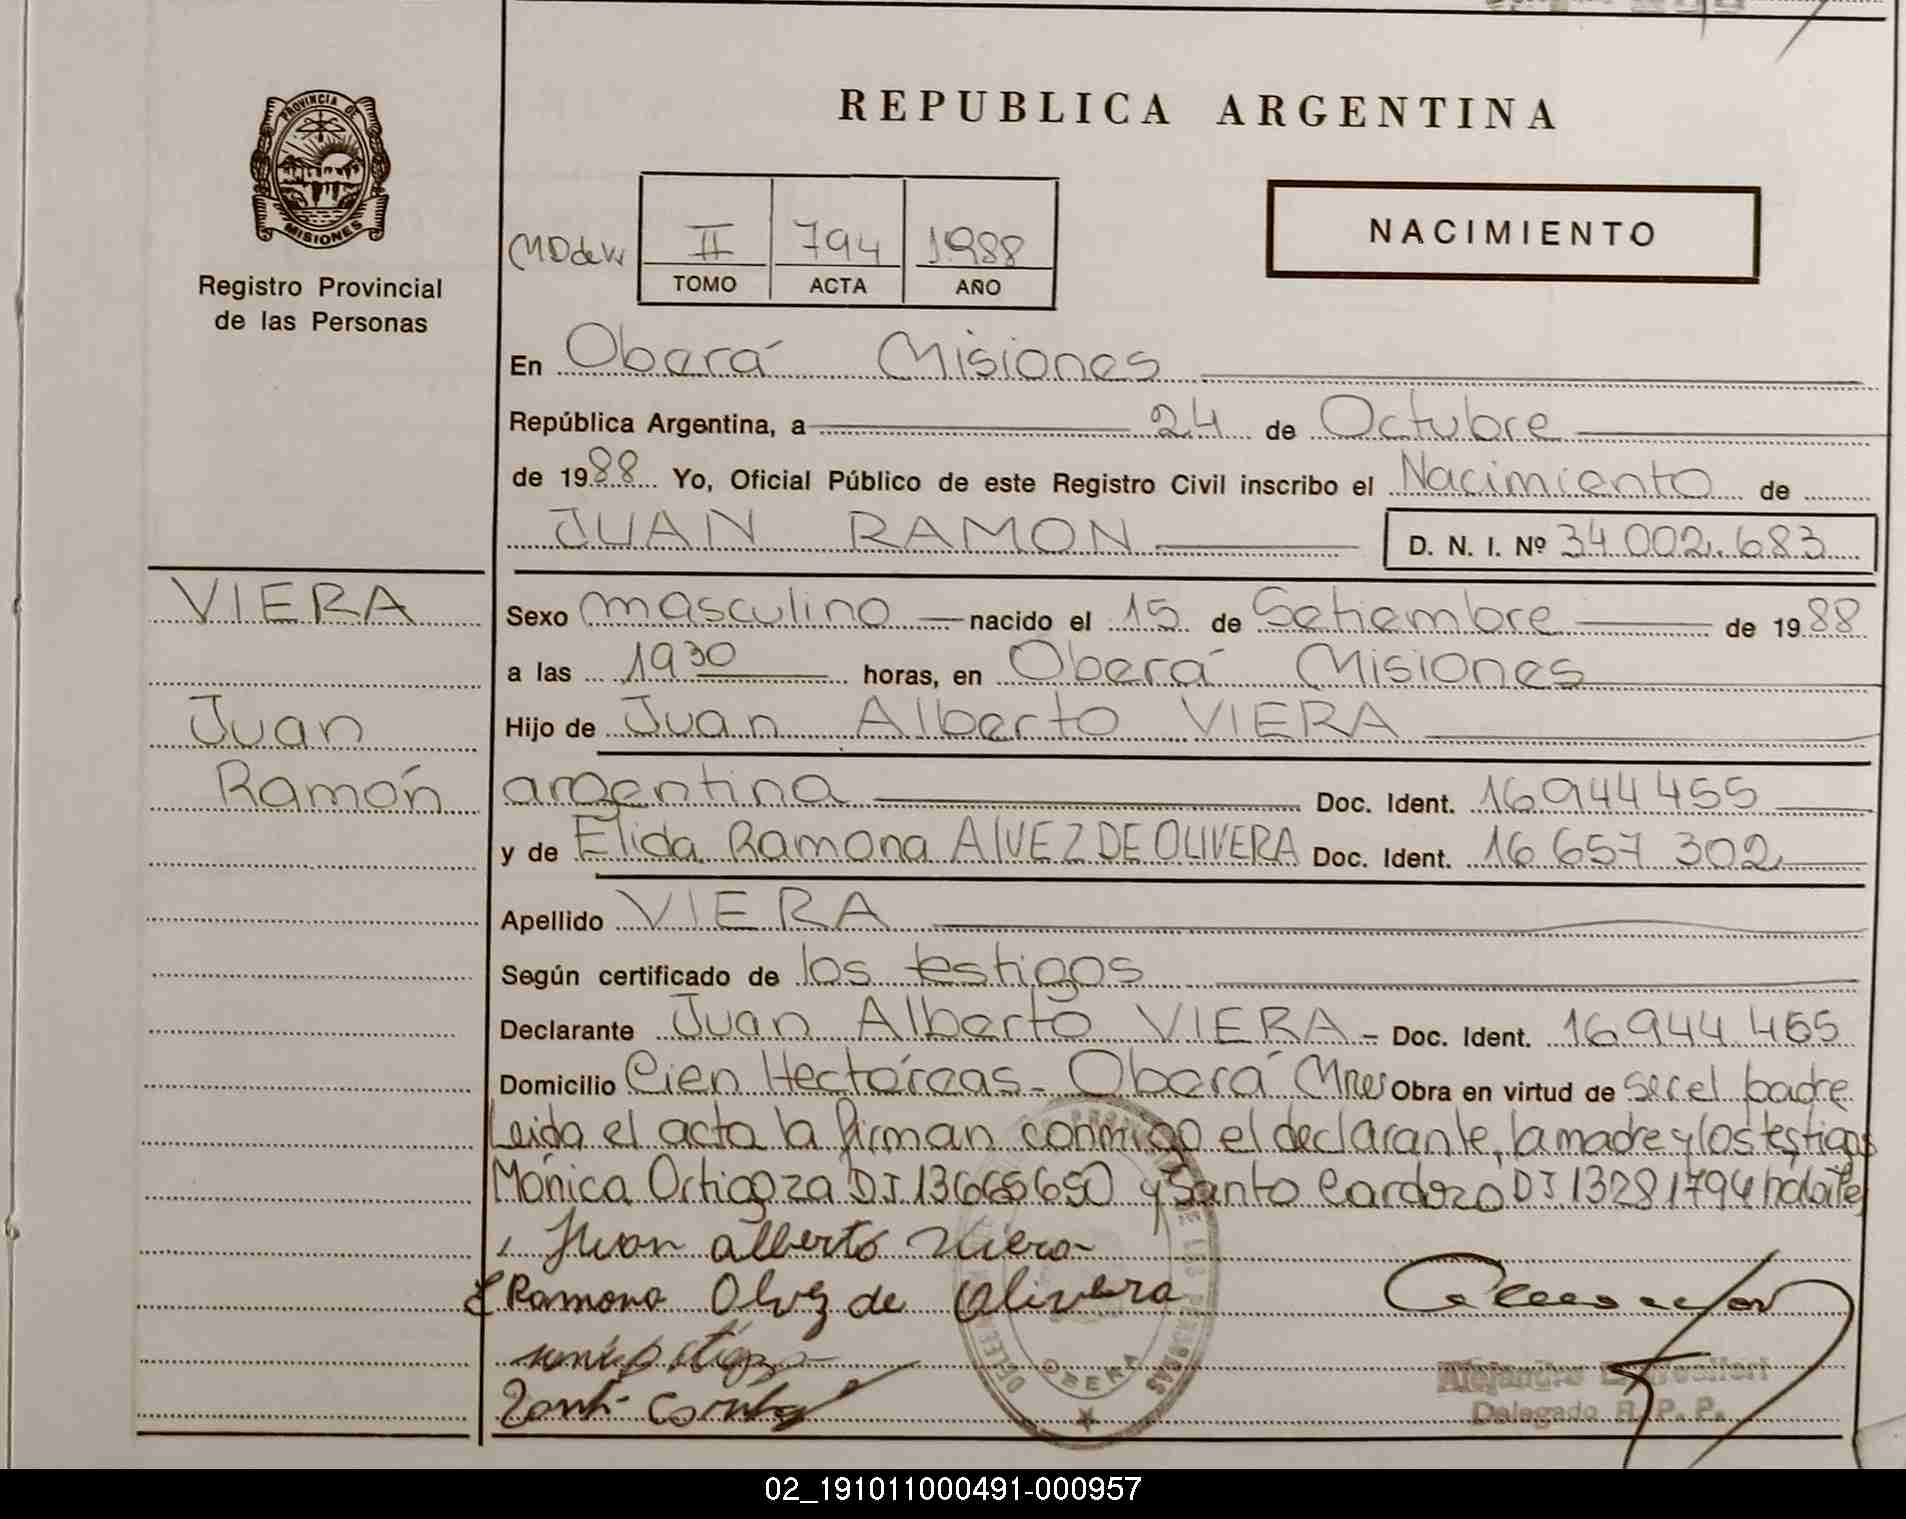 PROVINCIA DE
MISIONES
Registro Provincial
de las Personas
REPUBLICA ARGENTINA
II 794 1988
TOMO ACTA AÑO
NACIMIENTO
En Oberá Misiones
República Argentina, a 24 de Octubre
de 1988 Yo, Oficial Público de este Registro Civil inscribo el Nacimiento de
JUAN RAMON D. N. I. Nº 34.002.683
VIERA
Juan
Ramón
Sexo masculino nacido el 15 de Setiembre de 1988
a las 19 30 horas, en Oberá Misiones
Hijo de Juan Alberto VIERA
argentina Doc. Ident. 16944455
y de Elida Ramona AlVEZ DE OLIVERA Doc. Ident. 16 657 302
Apellido VIERA
Según certificado de los testigos
Declarante Juan Alberto VIERA - Doc. Ident. 16944 455
Domicilio Cien Hectáreas - Oberá Mnes Obra en virtud de ser el padre
Leida el acta la firman conmigo el declarante, la madre y los testigos
Mónica Ortigoza DI 13665650 y Santo Cardozo DI 13281794 hábiles
Juan alberto Viera
E Ramona Alvez de Olivera
OBERA
Delegado R. P. P.
02_191011000491-000957